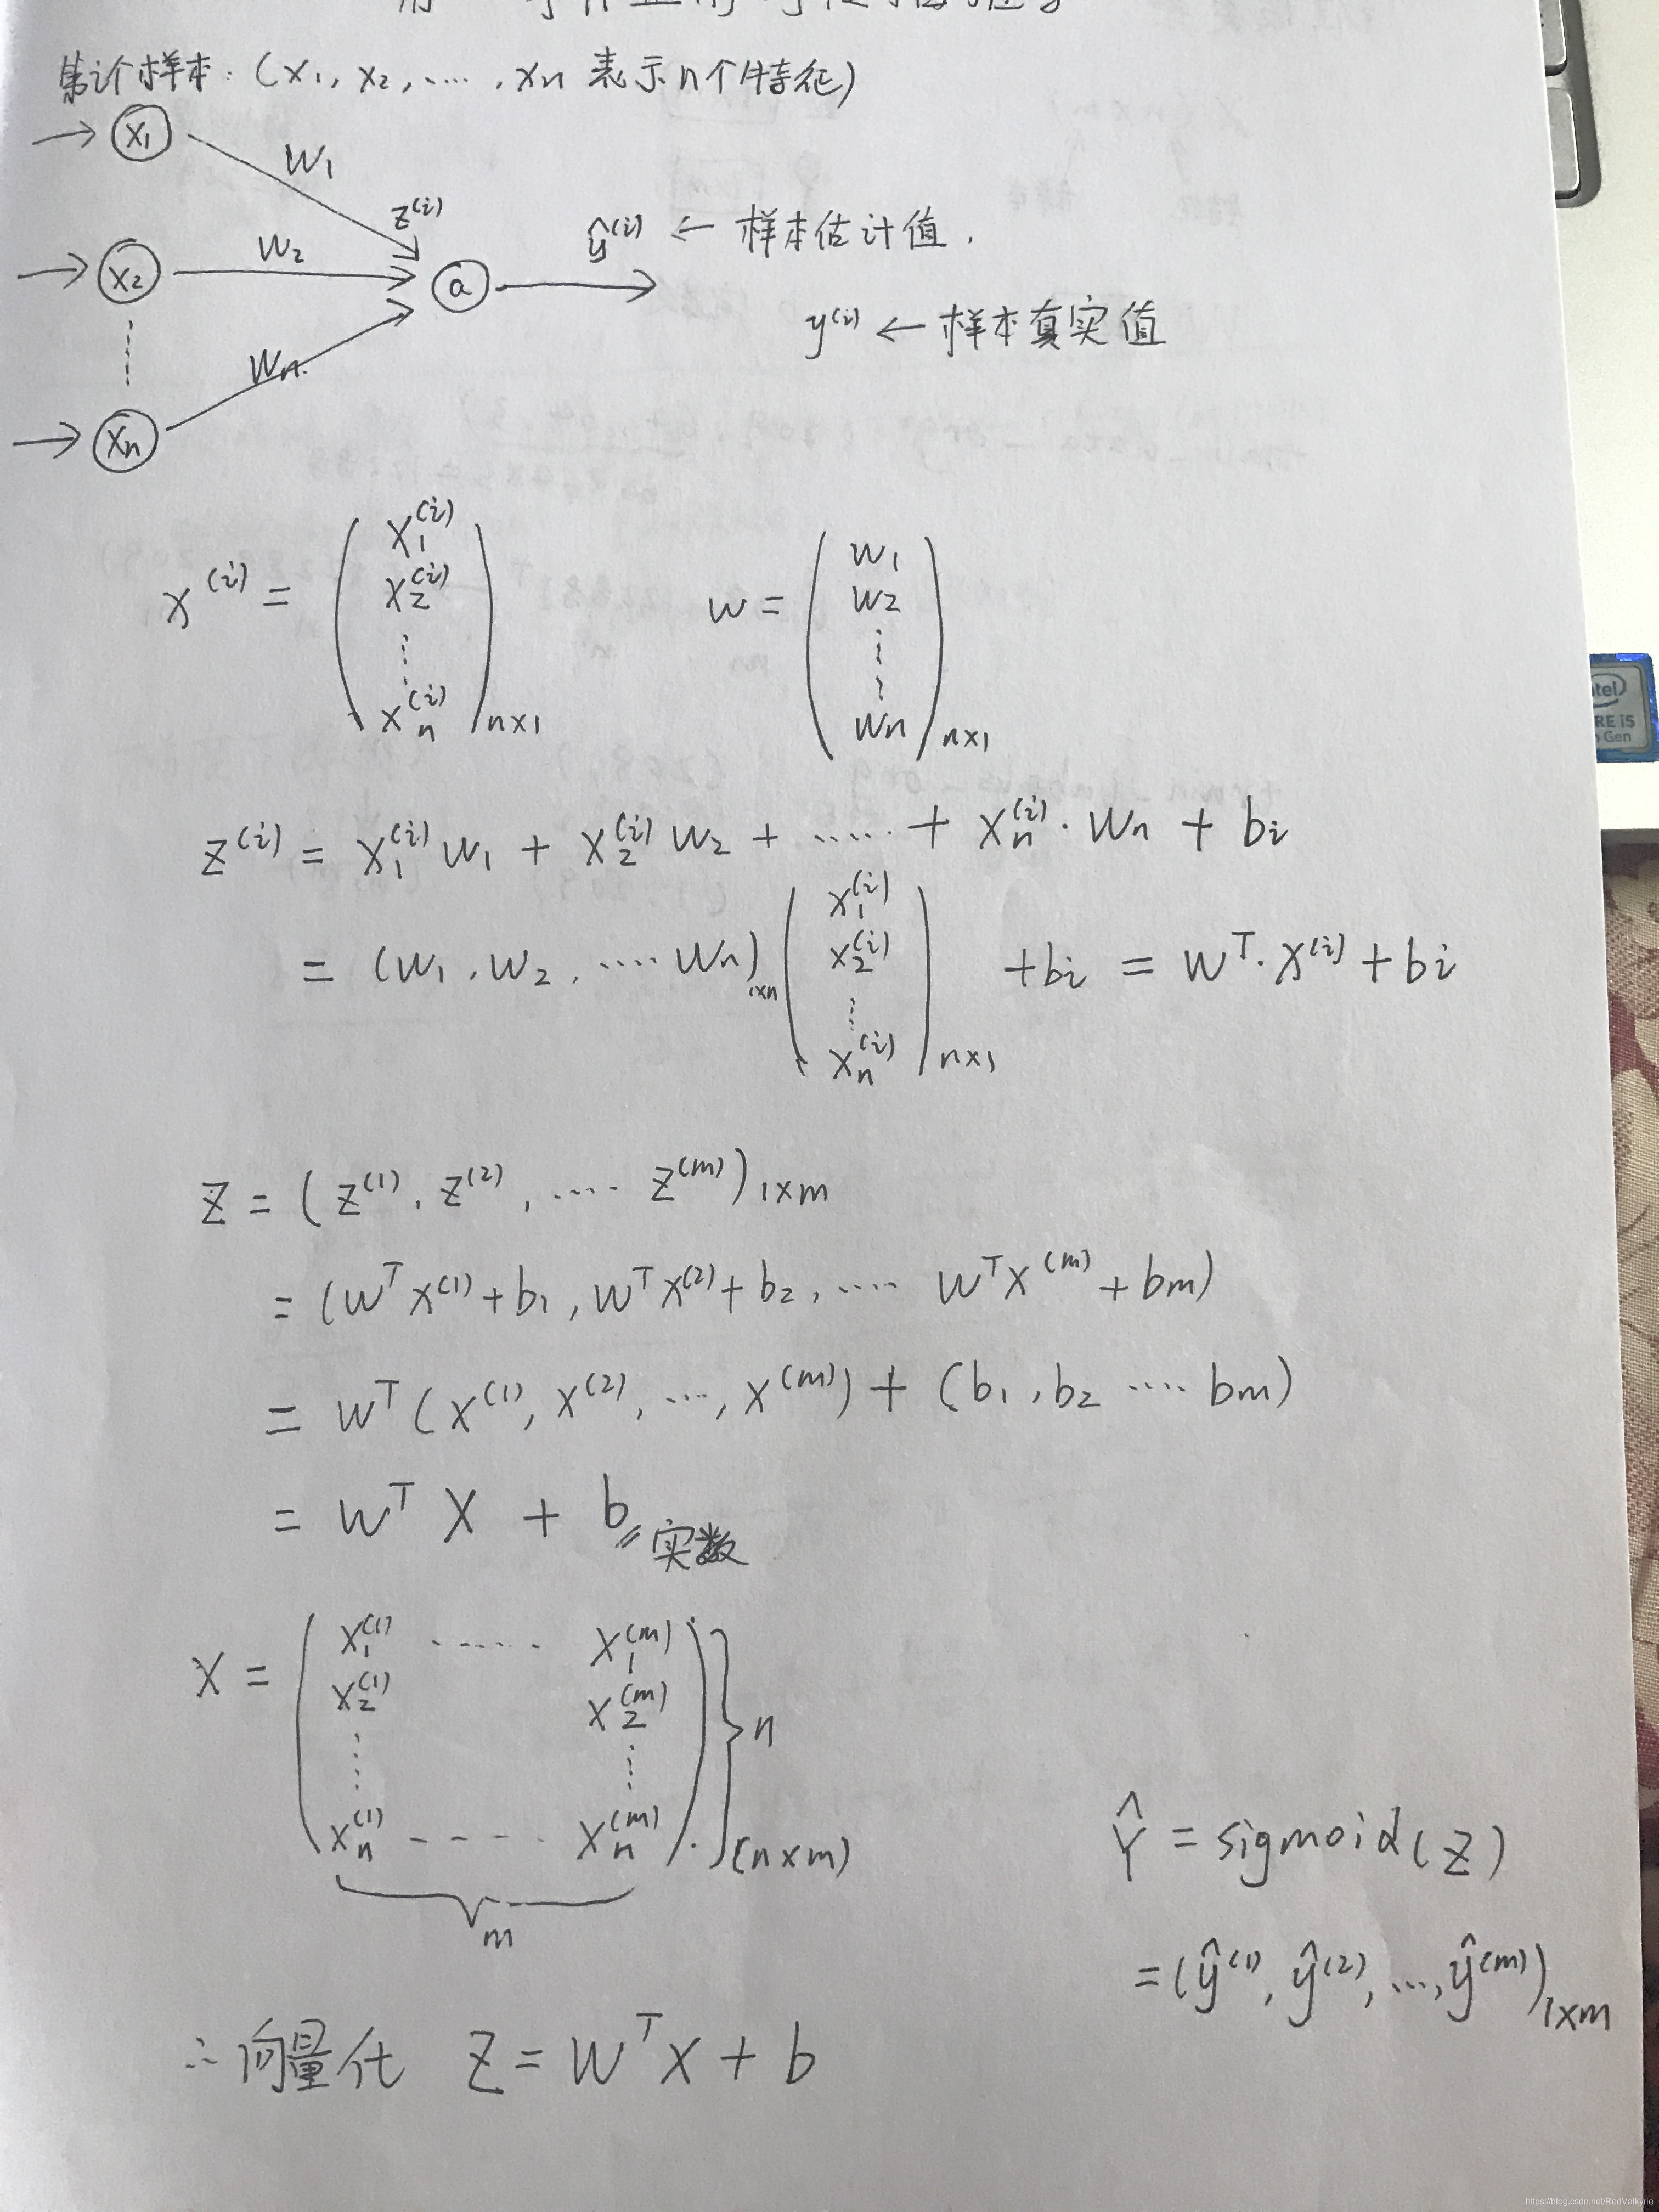 第i个样本：(x₁, x₂, ...., xₙ 表示n个特征)
x₁
w₁
z⁽ⁱ⁾
ŷ⁽ⁱ⁾ ← 样本估计值.
x₂
w₂
a
y⁽ⁱ⁾ ← 样本真实值
wₙ.
xₙ
x⁽ⁱ⁾ = ( x₁⁽ⁱ⁾ x₂⁽ⁱ⁾ ⋮ xₙ⁽ⁱ⁾ )ₙₓ₁ w = ( w₁ w₂ ⋮ wₙ )ₙₓ₁
z⁽ⁱ⁾ = x₁⁽ⁱ⁾w₁ + x₂⁽ⁱ⁾w₂ + ...... + xₙ⁽ⁱ⁾·wₙ + bᵢ
= (w₁, w₂, .... wₙ)₁ₓₙ ( x₁⁽ⁱ⁾ x₂⁽ⁱ⁾ ⋮ xₙ⁽ⁱ⁾ )ₙₓ₁ + bᵢ = wᵀ·x⁽ⁱ⁾ + bᵢ
Z = (z⁽¹⁾, z⁽²⁾, ..... z⁽ᵐ⁾)₁ₓₘ
= (wᵀx⁽¹⁾+b₁, wᵀx⁽²⁾+b₂, .... wᵀx⁽ᵐ⁾+bₘ)
= wᵀ(x⁽¹⁾, x⁽²⁾, ..., x⁽ᵐ⁾) + (b₁, b₂ .... bₘ)
= wᵀ X + b 实数
X = ( x₁⁽¹⁾ ...... x₁⁽ᵐ⁾
x₂⁽¹⁾ x₂⁽ᵐ⁾
⋮ ⋮
xₙ⁽¹⁾ ----- xₙ⁽ᵐ⁾ ) (n×m)
n
m
Ŷ = sigmoid(Z)
= (ŷ⁽¹⁾, ŷ⁽²⁾, ..., ŷ⁽ᵐ⁾)₁ₓₘ
∴ 向量化 Z = wᵀX + b
intel
CORE i5
Gen
https://blog.csdn.net/RedValkyrie